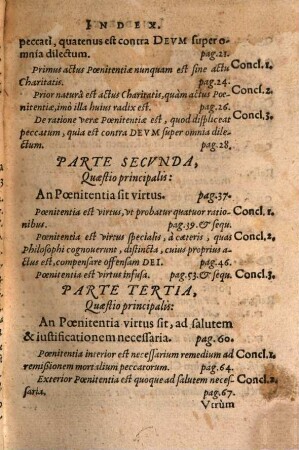 INDEX.
peccati, quatenus est contra DEVM super o-
mnia dilectum. pag.21.
Primus actus Pœnitentiæ nunquam est sine actu Concl.1.
Charitatis. pag.24.
Prior naturâ est actus Charitatis, quàm actus Pœ- Concl.2.
nitentiæ, imò illa huius radix est. pag.26.
De ratione veræ Pœnitentiæ est, quòd displiceat Concl.3.
peccatum, quia est contra DEVM super omnia dile-
ctum. pag.28.
PARTE SECVNDA,
Quæstio principalis:
An Pœnitentia sit virtus. pag.37.
Pœnitentia est virtus, vt probatur quatuor ratio- Concl.1.
nibus. pag.39.& sequ.
Pœnitentia est virtus specialis, à cæteris, quas Concl.2.
Philosophi cognouerunt, distincta, cuius proprius a-
ctus est, compensare offensam DEI. pag.46.
Pœnitentia est virtus infusa. pag.53.& sequ. Concl.3.
PARTE TERTIA,
Quæstio principalis:
An Pœnitentia virtus sit, ad salutem
& iustificationem necessaria. pag.60.
Pœnitentia interior est necessarium remedium ad Concl.1.
remissionem mortalium peccatorum. pag.64.
Exterior Pœnitentia est quoque ad salutem neces- Concl.2.
saria. pag.67.
Vtrùm